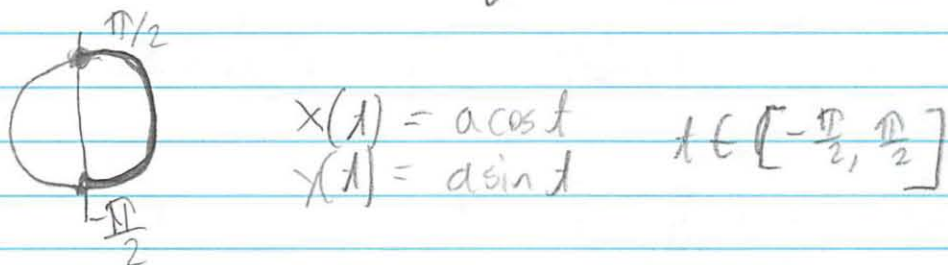 π/2
x(t) = a cos t
y(t) = a sin t
t ∈ [-π/2, π/2]
-π/2